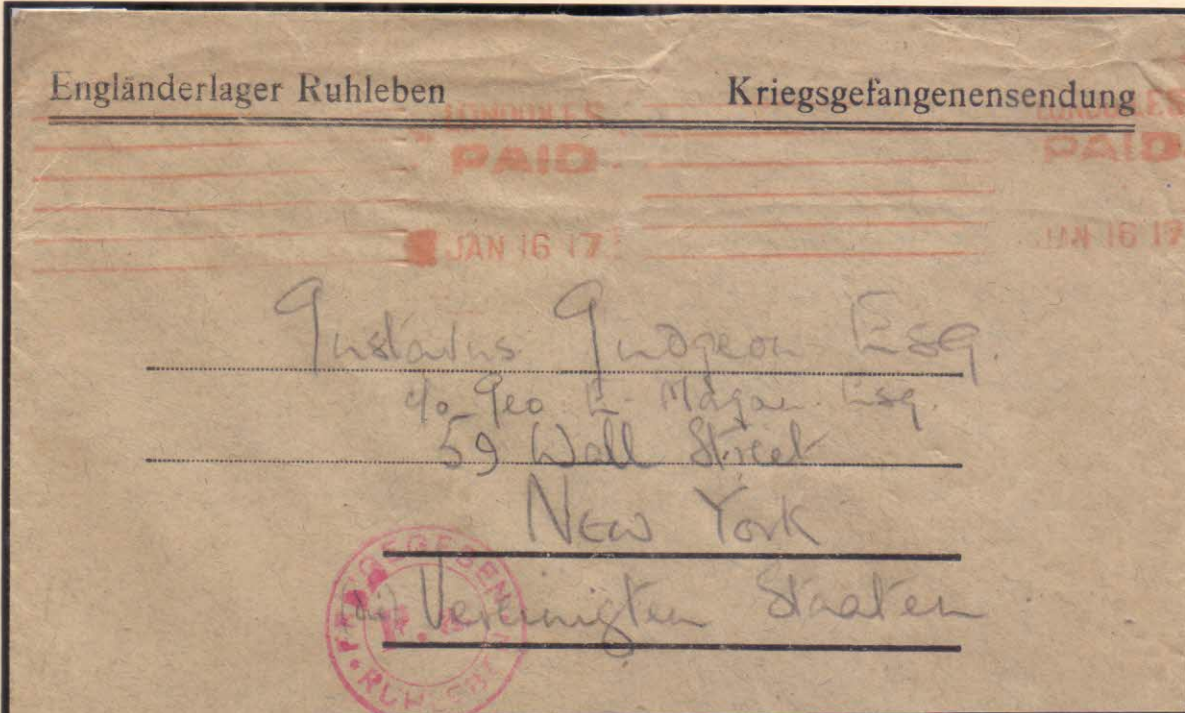 Engländerlager Ruhleben Kriegsgefangenensendung
LONDON.E.S LONDON.E.S
PAID PAID
JAN 16 17 JAN 16 17
Gustavus Gudgeon Esq.
c/o Geo E. Esq.
59 Wall Street
New York
Vereinigten Staaten
FREIGEGEBEN
RUHLEBEN